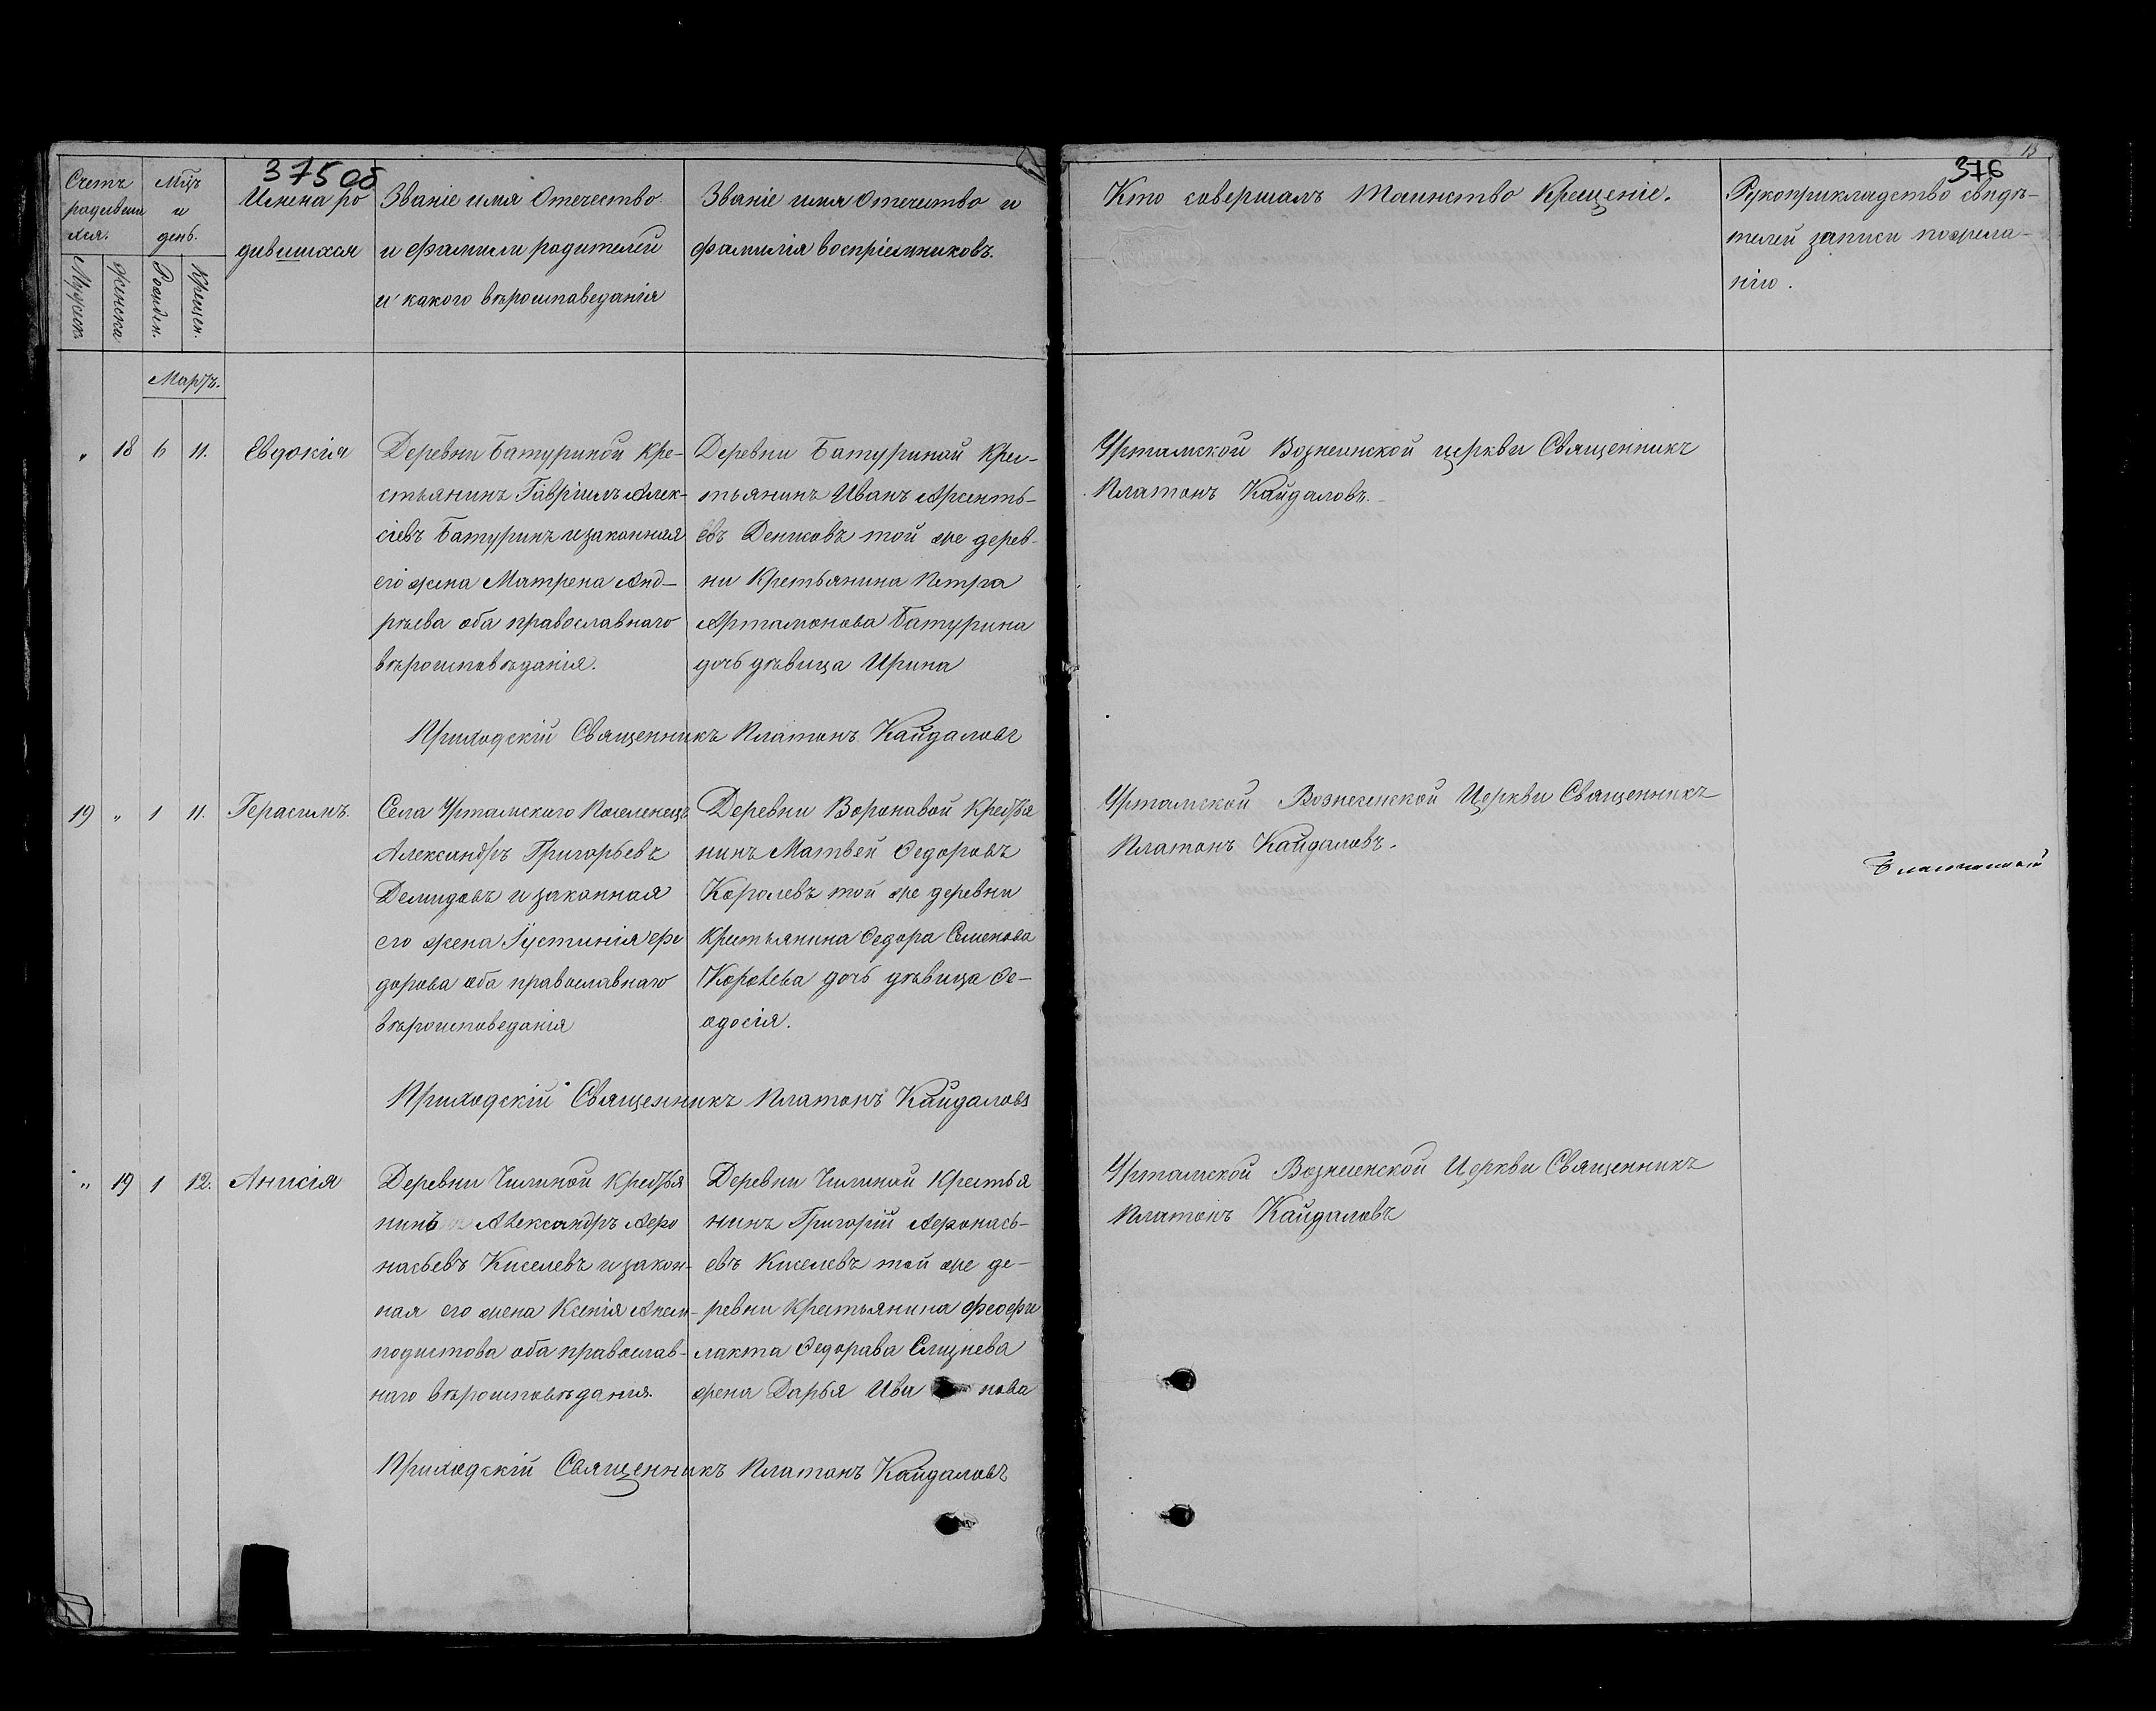 375об
Счетъ
родивши
хся.
Мцъ
и
день.
Мужеск
Женска
Рожден.
Крещен.
Имена ро
дившихся
Званіе имя Отечество
и фамили родителей
и какого вѣроисповеданія
Званіе имя Отечество и
фамилія воспріемниковъ.
Мартъ.
„ 18 6 11. Евдокія
Деревни Батуриной Кре-
стьянинъ Гавріилъ Алек-
сіевъ Батуринъ и законная
его жена Матрена Анд-
рѣева оба православнаго
вѣроисповѣданія.
Деревни Батуриной Крес-
тьянинъ Иванъ Арсенть-
евъ Денисовъ той же дерев-
ни Крестьянина Петра
Артамонова Батурина
дочь дѣвица Ирина
Приходскій Священникъ Платонъ Кайдаловъ
19 „ 1 11. Герасимъ.
Села Уртамскаго Поселенецъ
Александръ Григорьевъ
Демидовъ и законная
его жена Іустинія Фе
дорова оба православнаго
вѣроисповеданія
Деревни Вороновой Крестья
нинъ Матвей Ѳедоровъ
Королевъ той же деревни
Крестьянина Ѳедора Семенова
Королева дочь дѣвица Ѳе-
одосія.
Приходскій Священникъ Платонъ Кайдаловъ
„ 19 1 12. Анисія
Деревни Чилиной Крестья
нинъ Александръ Афо
насьевъ Киселевъ и закон-
ная его жена Ксенія Анем-
подистова оба православ-
наго вѣроисповѣданія.
Деревни Чилиной Крестья
нинъ Григорій Афонась-
евъ Киселевъ той же де-
ревни Крестьянина Феофи
лакта Ѳедорава Слизнева
жена Дарья Ива нова
Приходскій Священникъ Платонъ Кайдаловъ
376
Кто совершалъ Таинство Крещеніе.
Рукоприкладство свидѣ-
телей записи пожела-
нію.
Уртамской Вознесенской церкви Священникъ
Платонъ Кайдаловъ.
Уртамской Вознесенской Церкви Священникъ
Платонъ Кайдаловъ.
Уртамской Вознесенской Церкви Священникъ
Платонъ Кайдаловъ